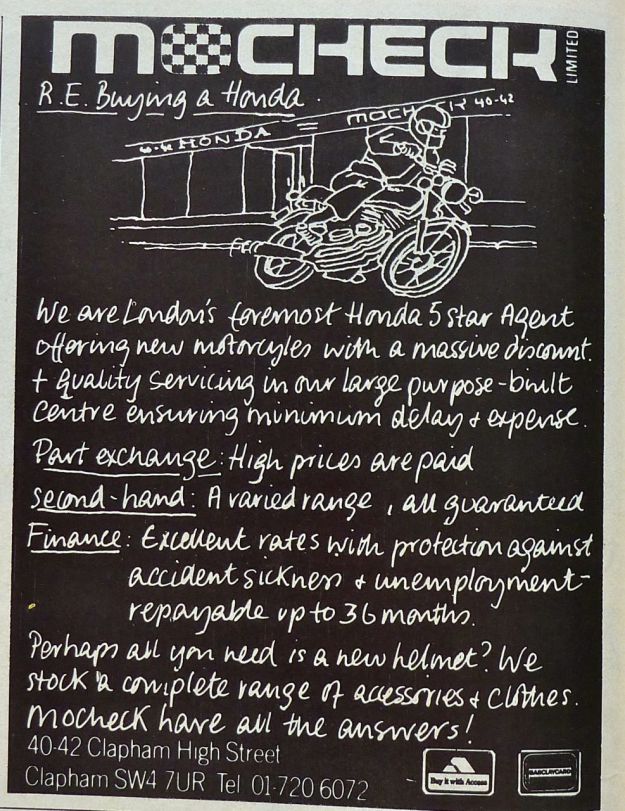 MOCHECK LIMITED
R.E. Buying a Honda.
40-42 HONDA = MOCHECK 40-42
We are London's foremost Honda 5 star Agent
offering new motorcyles with a massive discount.
+ Quality Servicing in our large purpose-built
Centre ensuring minimum delay + expense.
Part exchange: High prices are paid
second-hand: A varied range, all guaranteed
Finance: Excellent rates with protection against
accident sickness + unemployment-
repayable up to 36 months.
Perhaps all you need is a new helmet? We
stock a complete range of accessories + clothes.
Mocheck have all the answers!
40-42 Clapham High Street
Clapham SW4 7UR Tel 01-720 6072
Buy it with Access
BARCLAYCARD